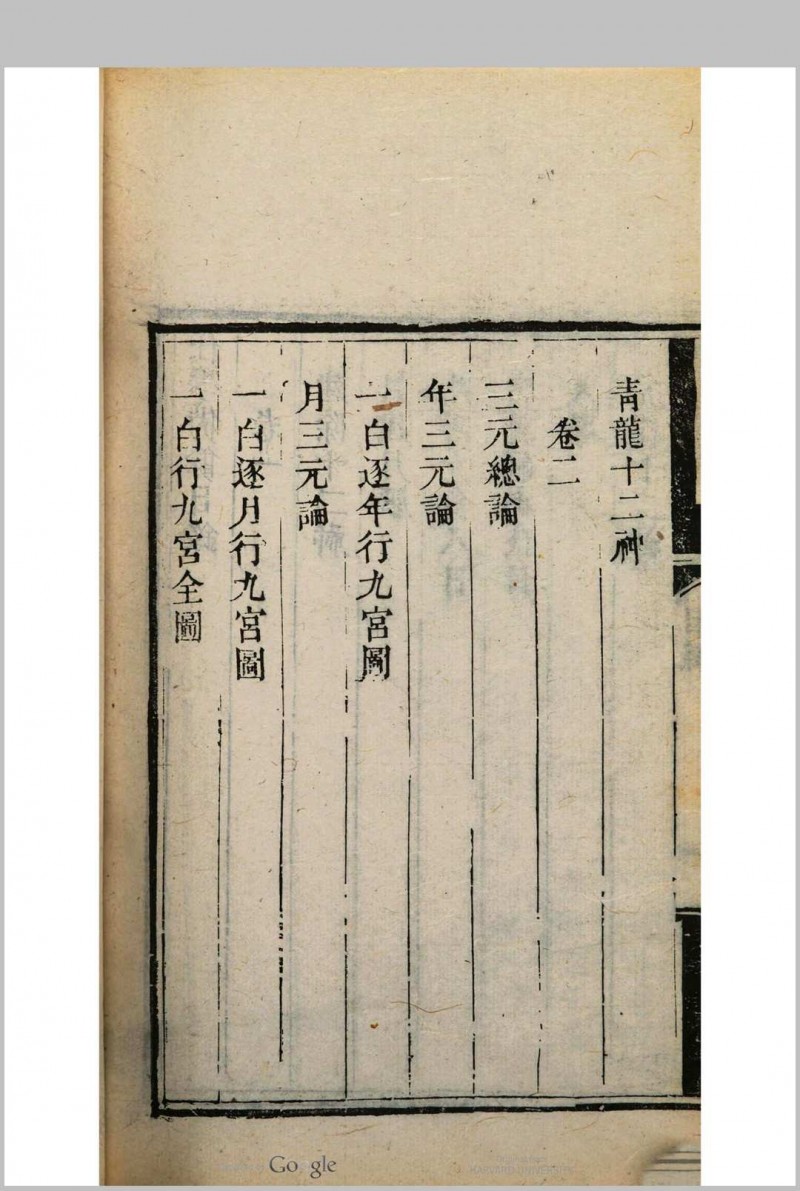 青龍十二神
卷二
三元總論
年三元論
一白逐年行九宮圖
月三元論
一白逐月行九宮圖
一白行九宮全圖
Google